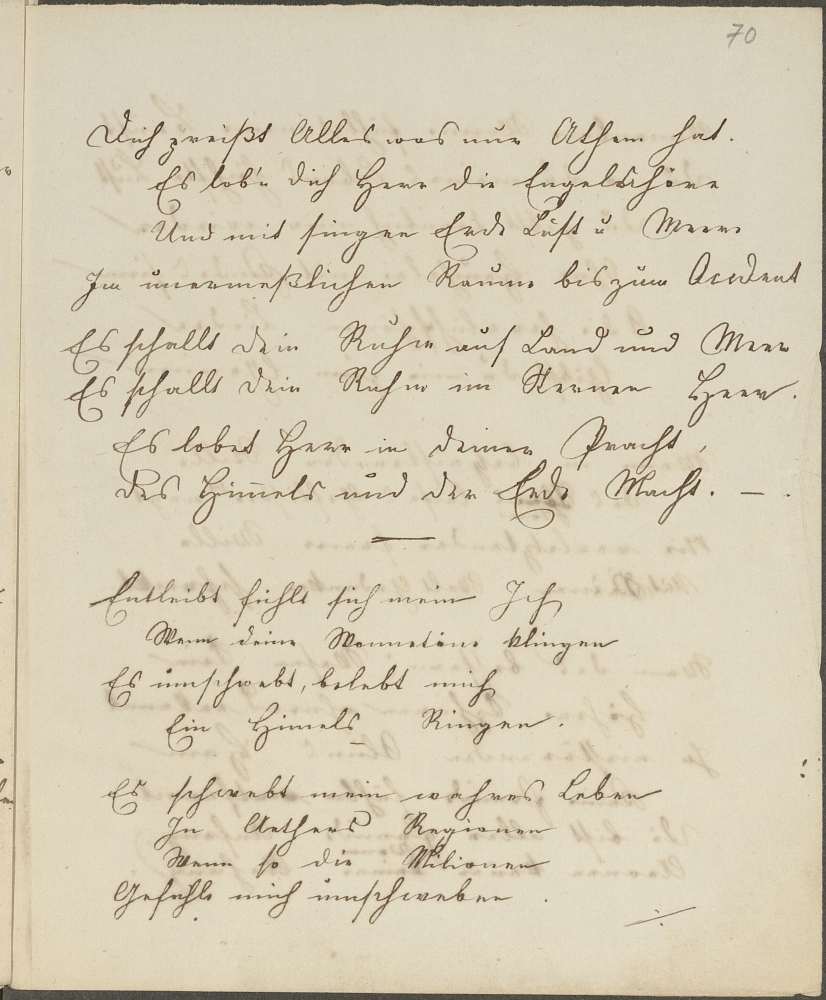 70
Dich preißt Alles was nur Athem hat.
Es lob'n dich Herr die Engelchöre
Und mit singen Erde Luft u Meere
Im unermeßlichen Raume bis zum Occident
Es schallt dein Ruhm auf Land und Meer
Es schallt dein Ruhm im Sternen Heer.
Es lobet Herr in deiner Pracht,
des Himels und der Erde Macht. — .
Entleibt fühlt sich mein Ich
Wenn deine Wonnetöne klingen
Es umschwebt, belebt mich
Ein Himels Ringen.
Es schwebt mein wahres Leben
In Aethers Regionen
Wenn so die Milionen
Gefühle mich umschweben.